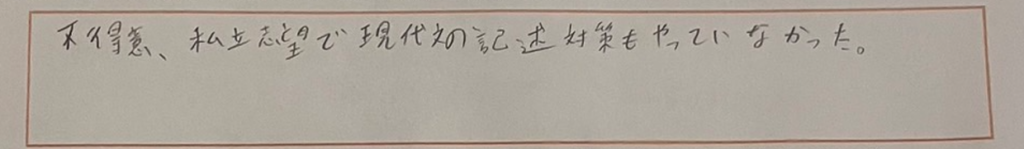 不得意、私立志望で現代文の記述対策もやっていなかった。